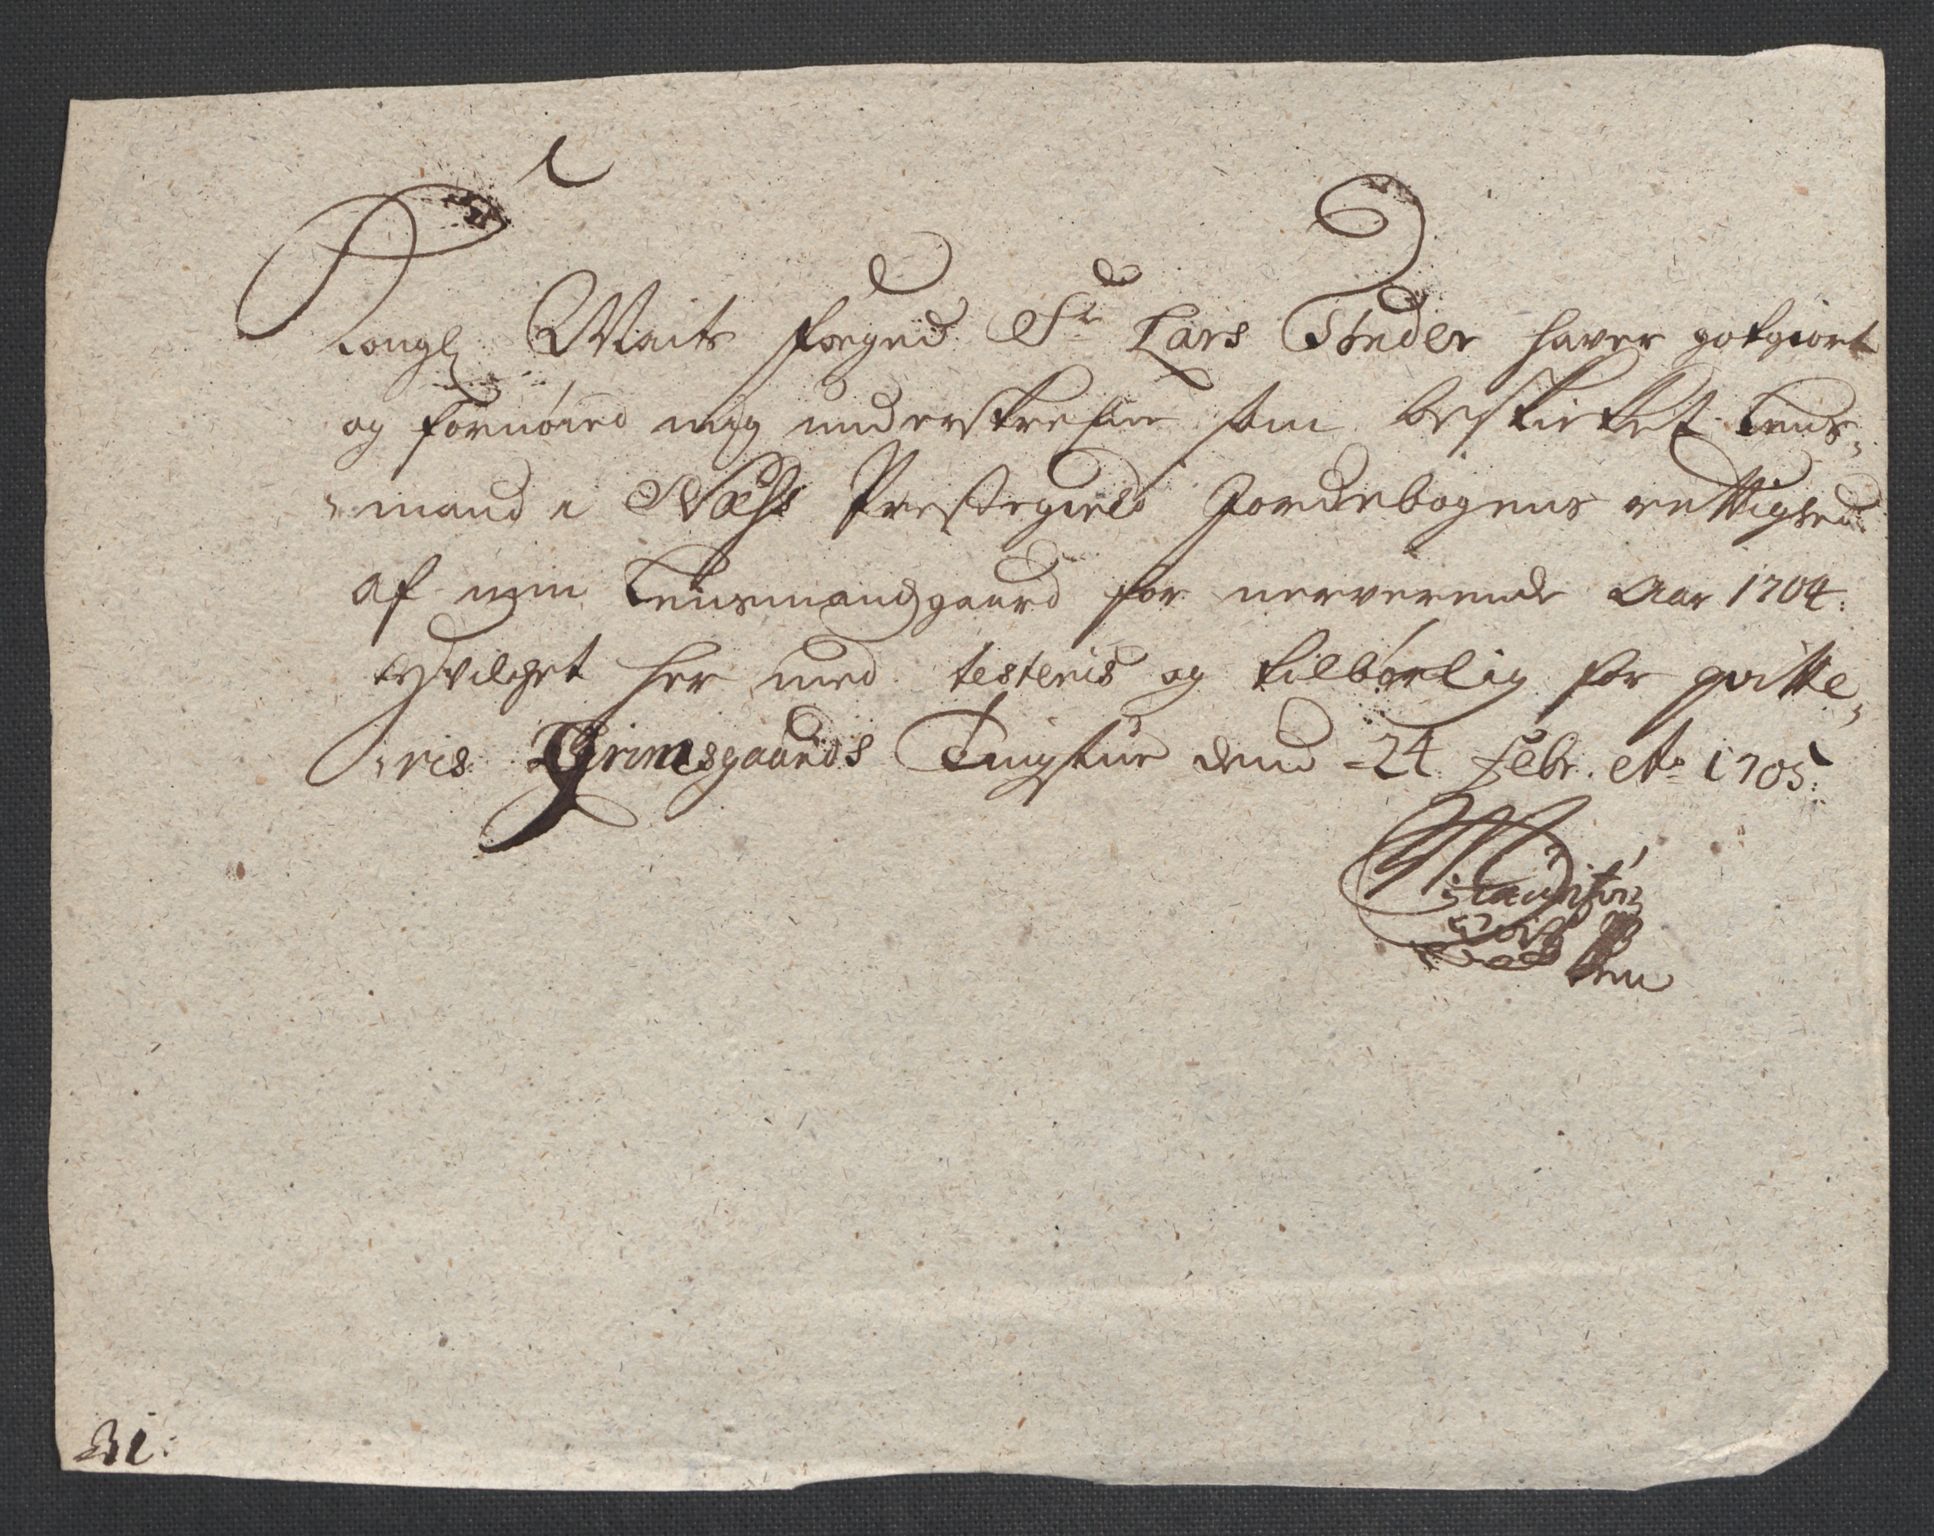 Kongl Maits foged Sr Lars Tønder haver gotgiort
og fornøied mig underskrefne som beskicket Lens-
mand i Næss Prestegield Jordebogens rettighed
af min Lensmandsgaard for nerverende Aar 1704:
hvilchet her med testeris og tilbørlig for qvitte-
ris. Grimsgaards Tingstue dend 24 Febr. Ao 1705:
31: